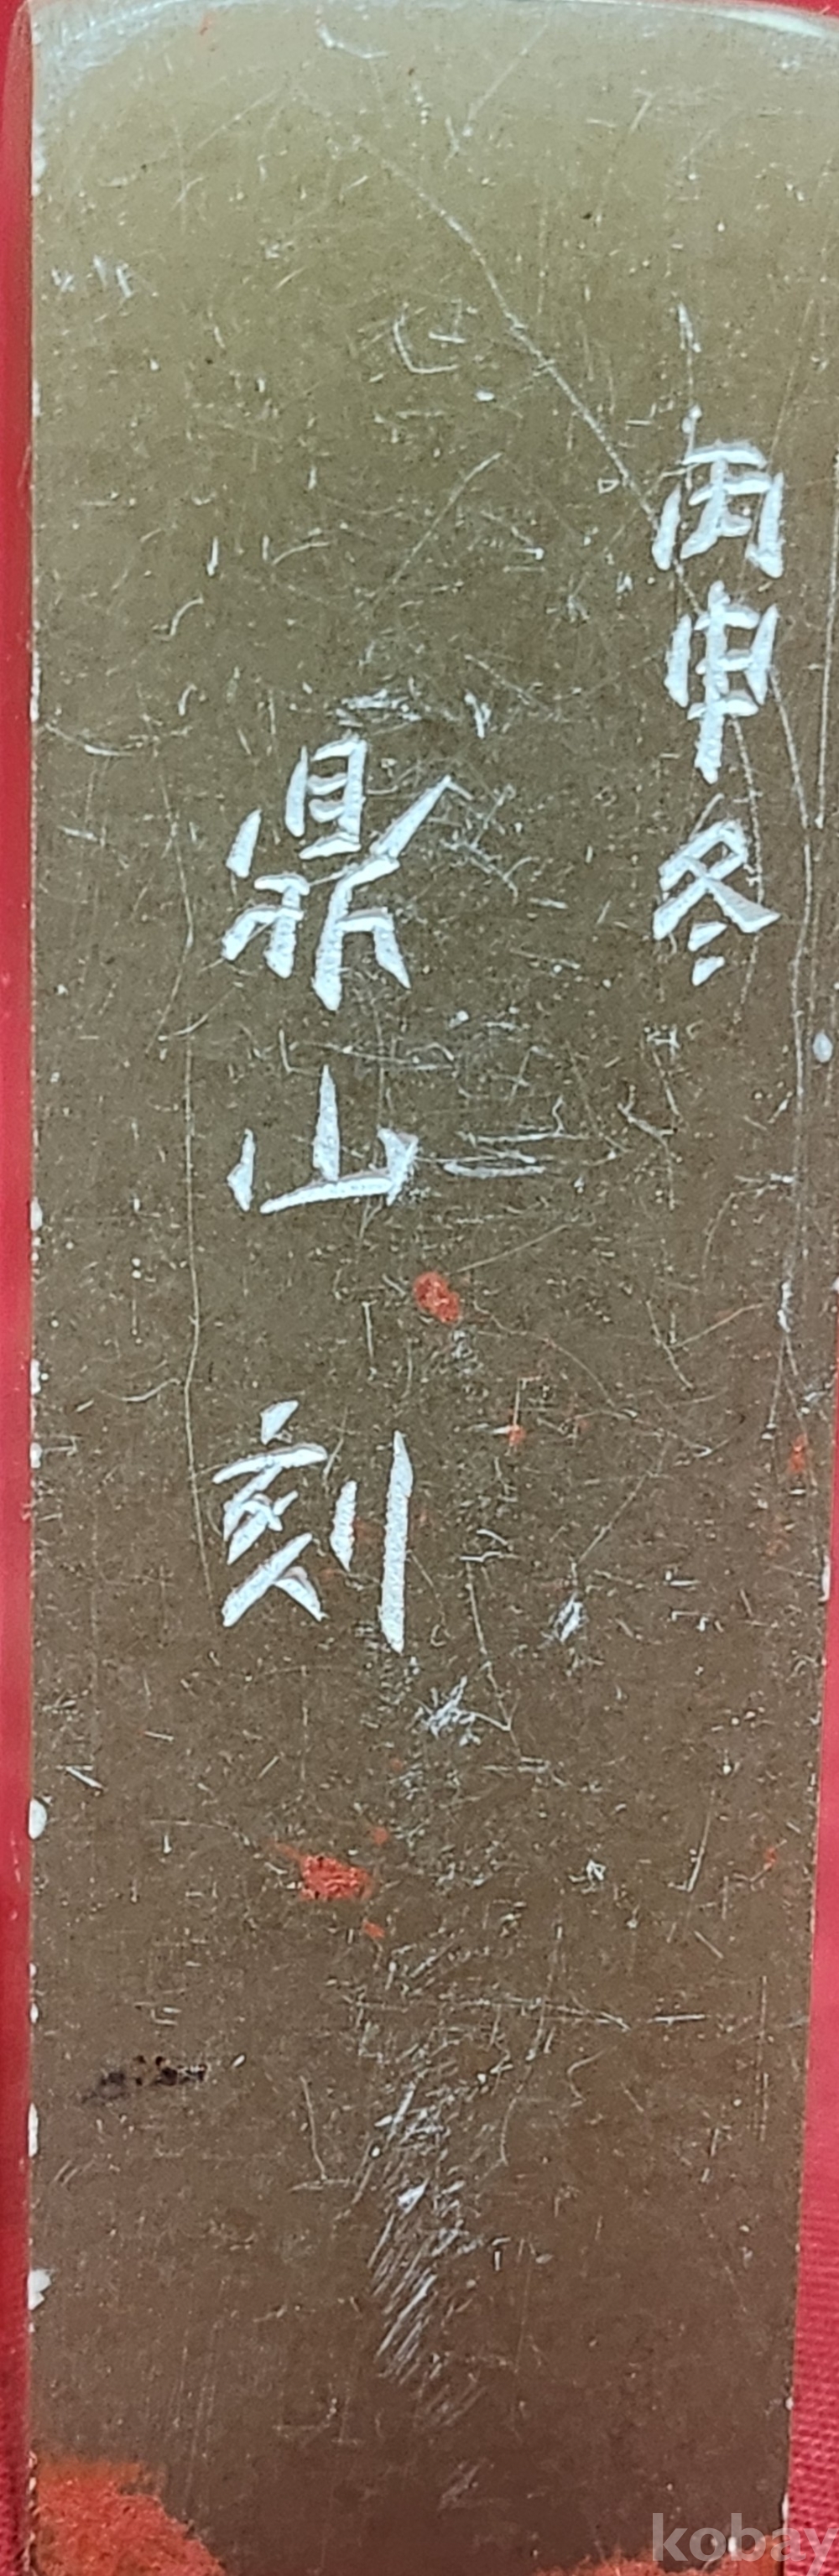 丙申冬
鼎山刻
kobay